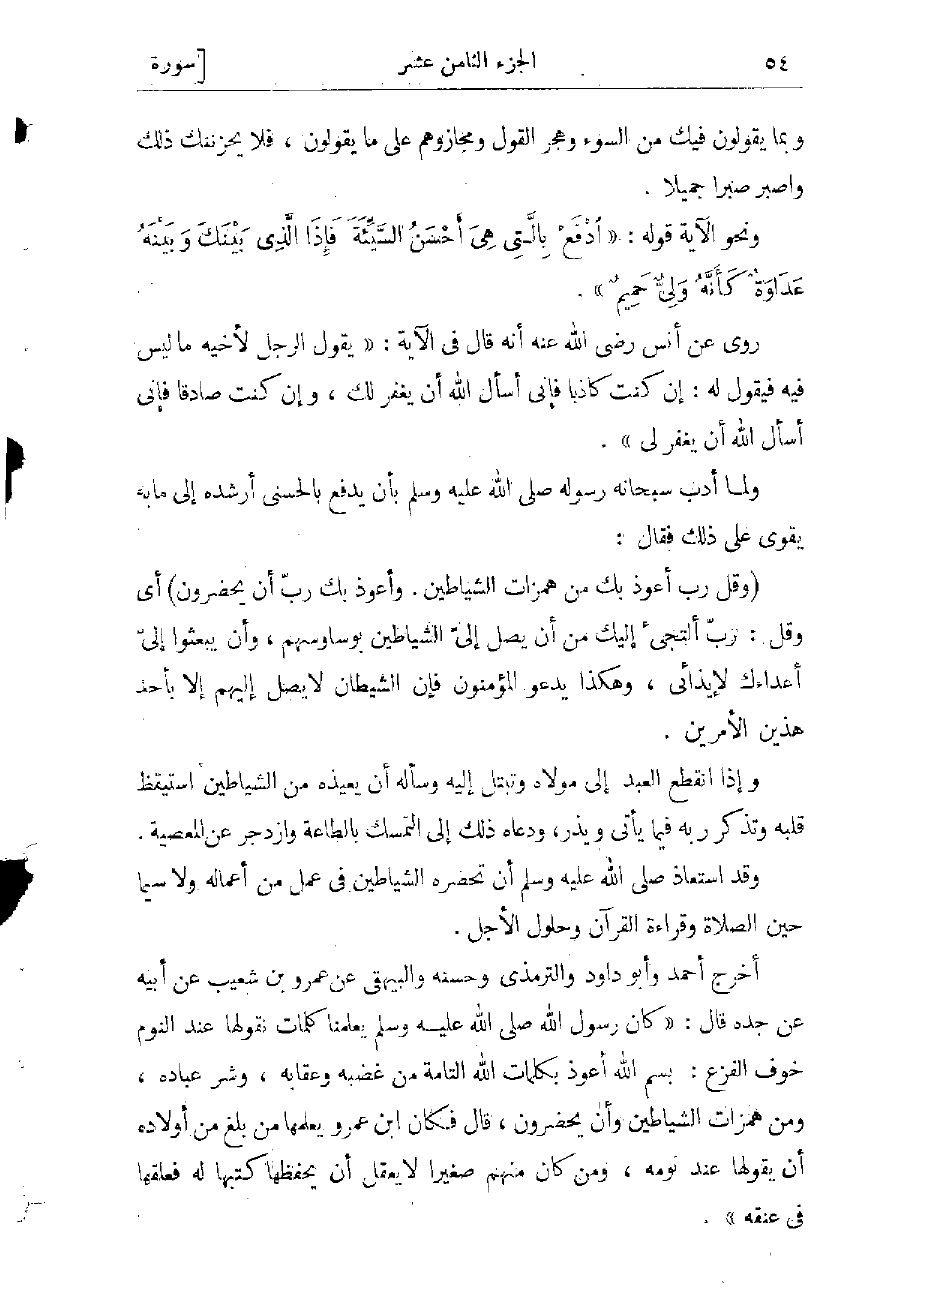 ٥٤ الجزء الثامن عشر [سورة
وبما يقولون فيك من السوء وهجر القول ومجازوهم على ما يقولون ، فلا يحزنتك ذلك
واصبر صبرا جميلا .
ونحو الآية قوله : « اُدْفَعْ بِالَّتِى هِىَ أَحْسَنُ السَّيِّئَةَ فَإِذَا الَّذِى بَيْنَكَ وَبَيْنَهُ
عَدَاوَةٌ كَأَنَّهُ وَلِىٌّ حَمِيمٌ » .
روى عن أنس رضى الله عنه أنه قال فى الآية : « يقول الرجل لأخيه ما ليس
فيه فيقول له : إن كنت كاذبا فإنى أسأل الله أن يغفر لك ، وإن كنت صادقا فإنى
أسأل الله أن يغفر لى » .
ولما أدب سبحانه رسوله صلى الله عليه وسلم بأن يدفع بالحسنى أرشده إلى مابه
يقوى على ذلك فقال :
(وقل رب أعوذ بك من همزات الشياطين . وأعوذ بك ربّ أن يحضرون) أى
وقل : ربّ ألتجىء إليك من أن يصل إلىّ الشياطين بوساوسهم ، وأن يبعثوا إلىّ
أعداءك لإيذائى ، وهكذا يدعو المؤمنون فإن الشيطان لايصل إليهم إلا بأحد
هذين الأمرين .
وإذا انقطع العبد إلى مولاه وتبتل إليه وسأله أن يعيذه من الشياطين استيقظ
قلبه وتذكر ربه فيما يأتى ويذر، ودعاه ذلك إلى التمسك بالطاعة وازدجر عن المعصية .
وقد استعاذ صلى الله عليه وسلم أن تحضره الشياطين فى عمل من أعماله ولا سيما
حين الصلاة وقراءة القرآن وحلول الأجل .
أخرج أحمد وأبو داود والترمذى وحسنه والبيهقى عن عمرو بن شعيب عن أبيه
عن جده قال : « كان رسول الله صلى الله عليه وسلم يعلمنا كلمات نقولها عند النوم
خوف الفزع : بسم الله أعوذ بكلمات الله التامة من غضبه وعقابه ، وشر عباده ،
ومن همزات الشياطين وأن يحضرون ، قال فكان ابن عمرو يعلمها من بلغ من أولاده
أن يقولها عند نومه ، ومن كان منهم صغيرا لايعقل أن يحفظها كتبها له فعلقها
فى عنقه » .